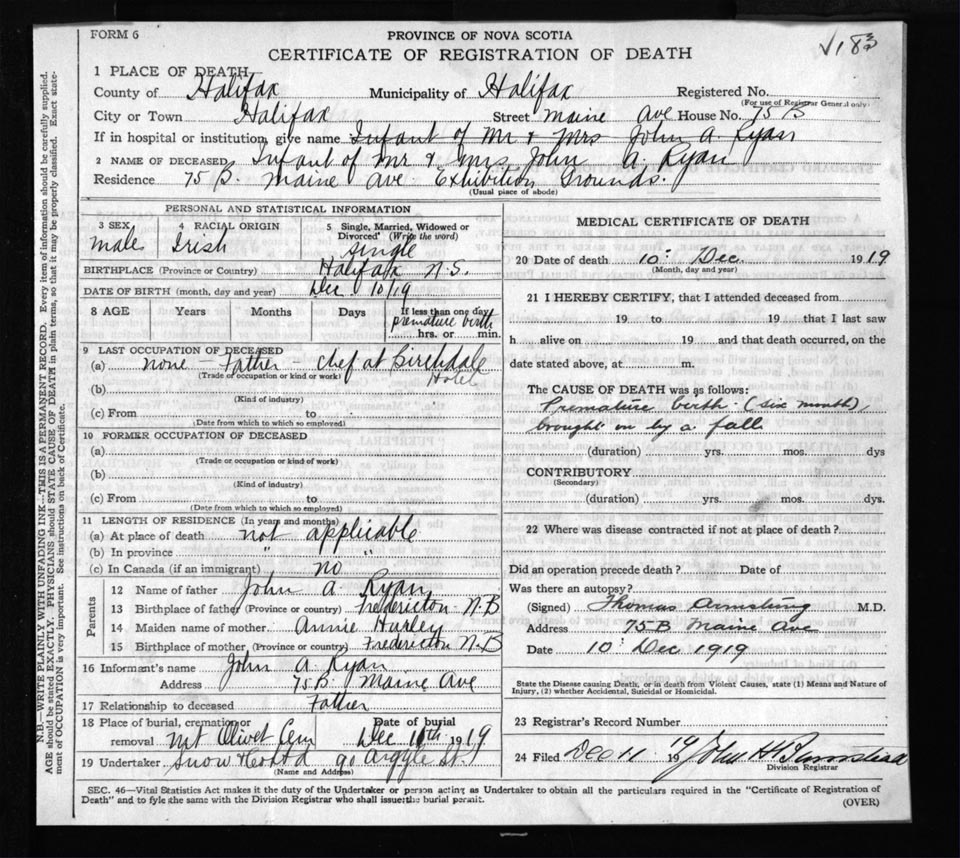 FORM 6
PROVINCE OF NOVA SCOTIA
CERTIFICATE OF REGISTRATION OF DEATH
1 PLACE OF DEATH
County of Halifax Municipality of Halifax Registered No.
(For use of Registrar General only)
City or Town Halifax Street Maine Ave House No. 75 B
If in hospital or institution, give name Infant of Mr & Mrs John A. Ryan
2 NAME OF DECEASED Infant of Mr & Mrs John A. Ryan
Residence 75 B. Maine Ave Exhibition Grounds.
(Usual place of abode)
PERSONAL AND STATISTICAL INFORMATION
3 SEX 4 RACIAL ORIGIN 5 Single, Married, Widowed or Divorced (Write the word)
male Irish single
BIRTHPLACE (Province or Country) Halifax N.S.
DATE OF BIRTH (month, day and year) Dec 10/19
8 AGE Years Months Days If less than one day
premature birth
hrs. or min.
9 LAST OCCUPATION OF DECEASED
(a) none Father - chef at Birchdale Hotel
(Trade or occupation or kind of work)
(b)
(Kind of industry)
(c) From to
(Date from which to which so employed)
10 FORMER OCCUPATION OF DECEASED
(a)
(Trade or occupation or kind of work)
(b)
(Kind of industry)
(c) From to
(Date from which to which so employed)
11 LENGTH OF RESIDENCE (In years and months)
(a) At place of death not applicable
(b) In province " "
(c) In Canada (if an immigrant) no
Parents
12 Name of father John A. Ryan
13 Birthplace of father (Province or country) Fredericton N.B
14 Maiden name of mother Annie Hurley
15 Birthplace of mother (Province or country) Fredericton N.B
16 Informant's name John A. Ryan
Address 75 B. Maine Ave
17 Relationship to deceased Father
18 Place of burial, cremation or removal Mt Olivet Cem Date of burial Dec 11th 1919
19 Undertaker Snow & 90 Argyle St.
(Name and Address)
MEDICAL CERTIFICATE OF DEATH
20 Date of death 10: Dec. 1919
(Month, day and year)
21 I HEREBY CERTIFY, that I attended deceased from
19 to 19 that I last saw
h alive on 19 and that death occurred, on the
date stated above, at m.
The CAUSE OF DEATH was as follows:
Premature birth (six month)
brought on by a fall
(duration) yrs. mos. dys
CONTRIBUTORY
(Secondary)
(duration) yrs. mos. dys.
22 Where was disease contracted if not at place of death?
Did an operation precede death? Date of
Was there an autopsy?
(Signed) Thomas M.D.
Address 75B Maine Ave
Date 10: Dec 1919
State the Disease causing Death, or in death from Violent Causes, state (1) Means and Nature of
Injury, (2) whether Accidental, Suicidal or Homicidal.
23 Registrar's Record Number
24 Filed Dec 11 1919 John H
Division Registrar
SEC. 46—Vital Statistics Act makes it the duty of the Undertaker or person acting as Undertaker to obtain all the particulars required in the "Certificate of Registration of
Death" and to fyle the same with the Division Registrar who shall issue the burial permit.
(OVER)
N.B.—WRITE PLAINLY WITH UNFADING INK—THIS IS A PERMANENT RECORD. Every item of information should be carefully supplied.
AGE should be stated EXACTLY. PHYSICIANS should STATE CAUSE OF DEATH in plain terms, so that it may be properly classified. Exact state-
ment of OCCUPATION is very important. See instructions on back of Certificate.